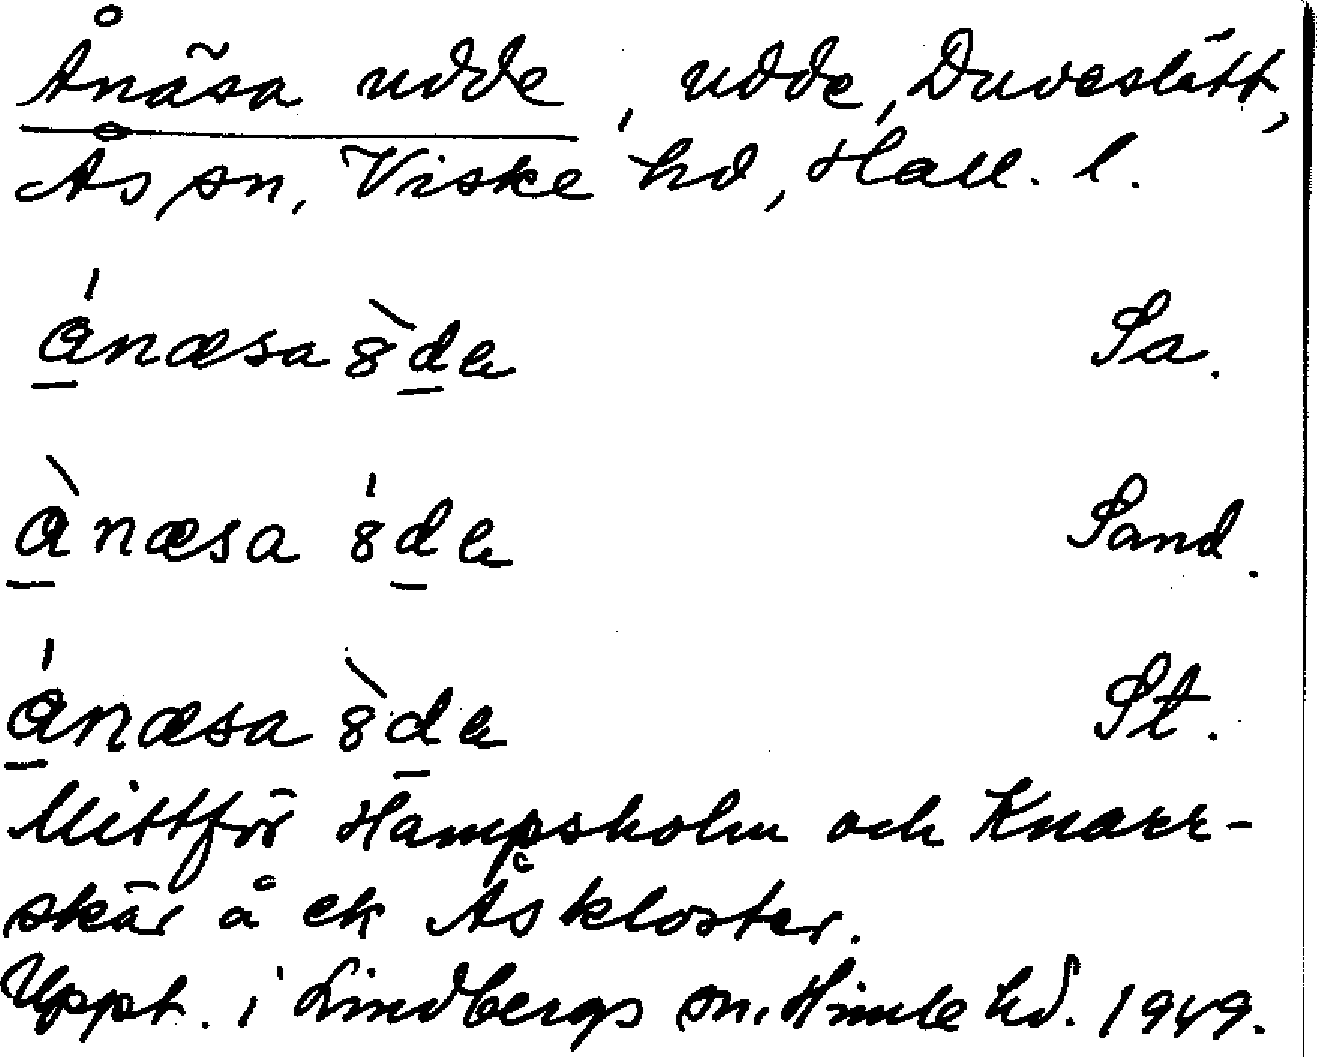 Ånäsa udde, udde, Duveslätt,
Ås sn, Viske hd, Hall. l.
á̲næsa 8̀d̲e Sa.
à̲næsa 8́d̲e Sand.
á̲næsa 8̀d̲e St.
Mittför Hampsholm och Knarr-
skär å ek Åskloster.
Uppt. i Lindbergs sn, Himle hd. 1949.